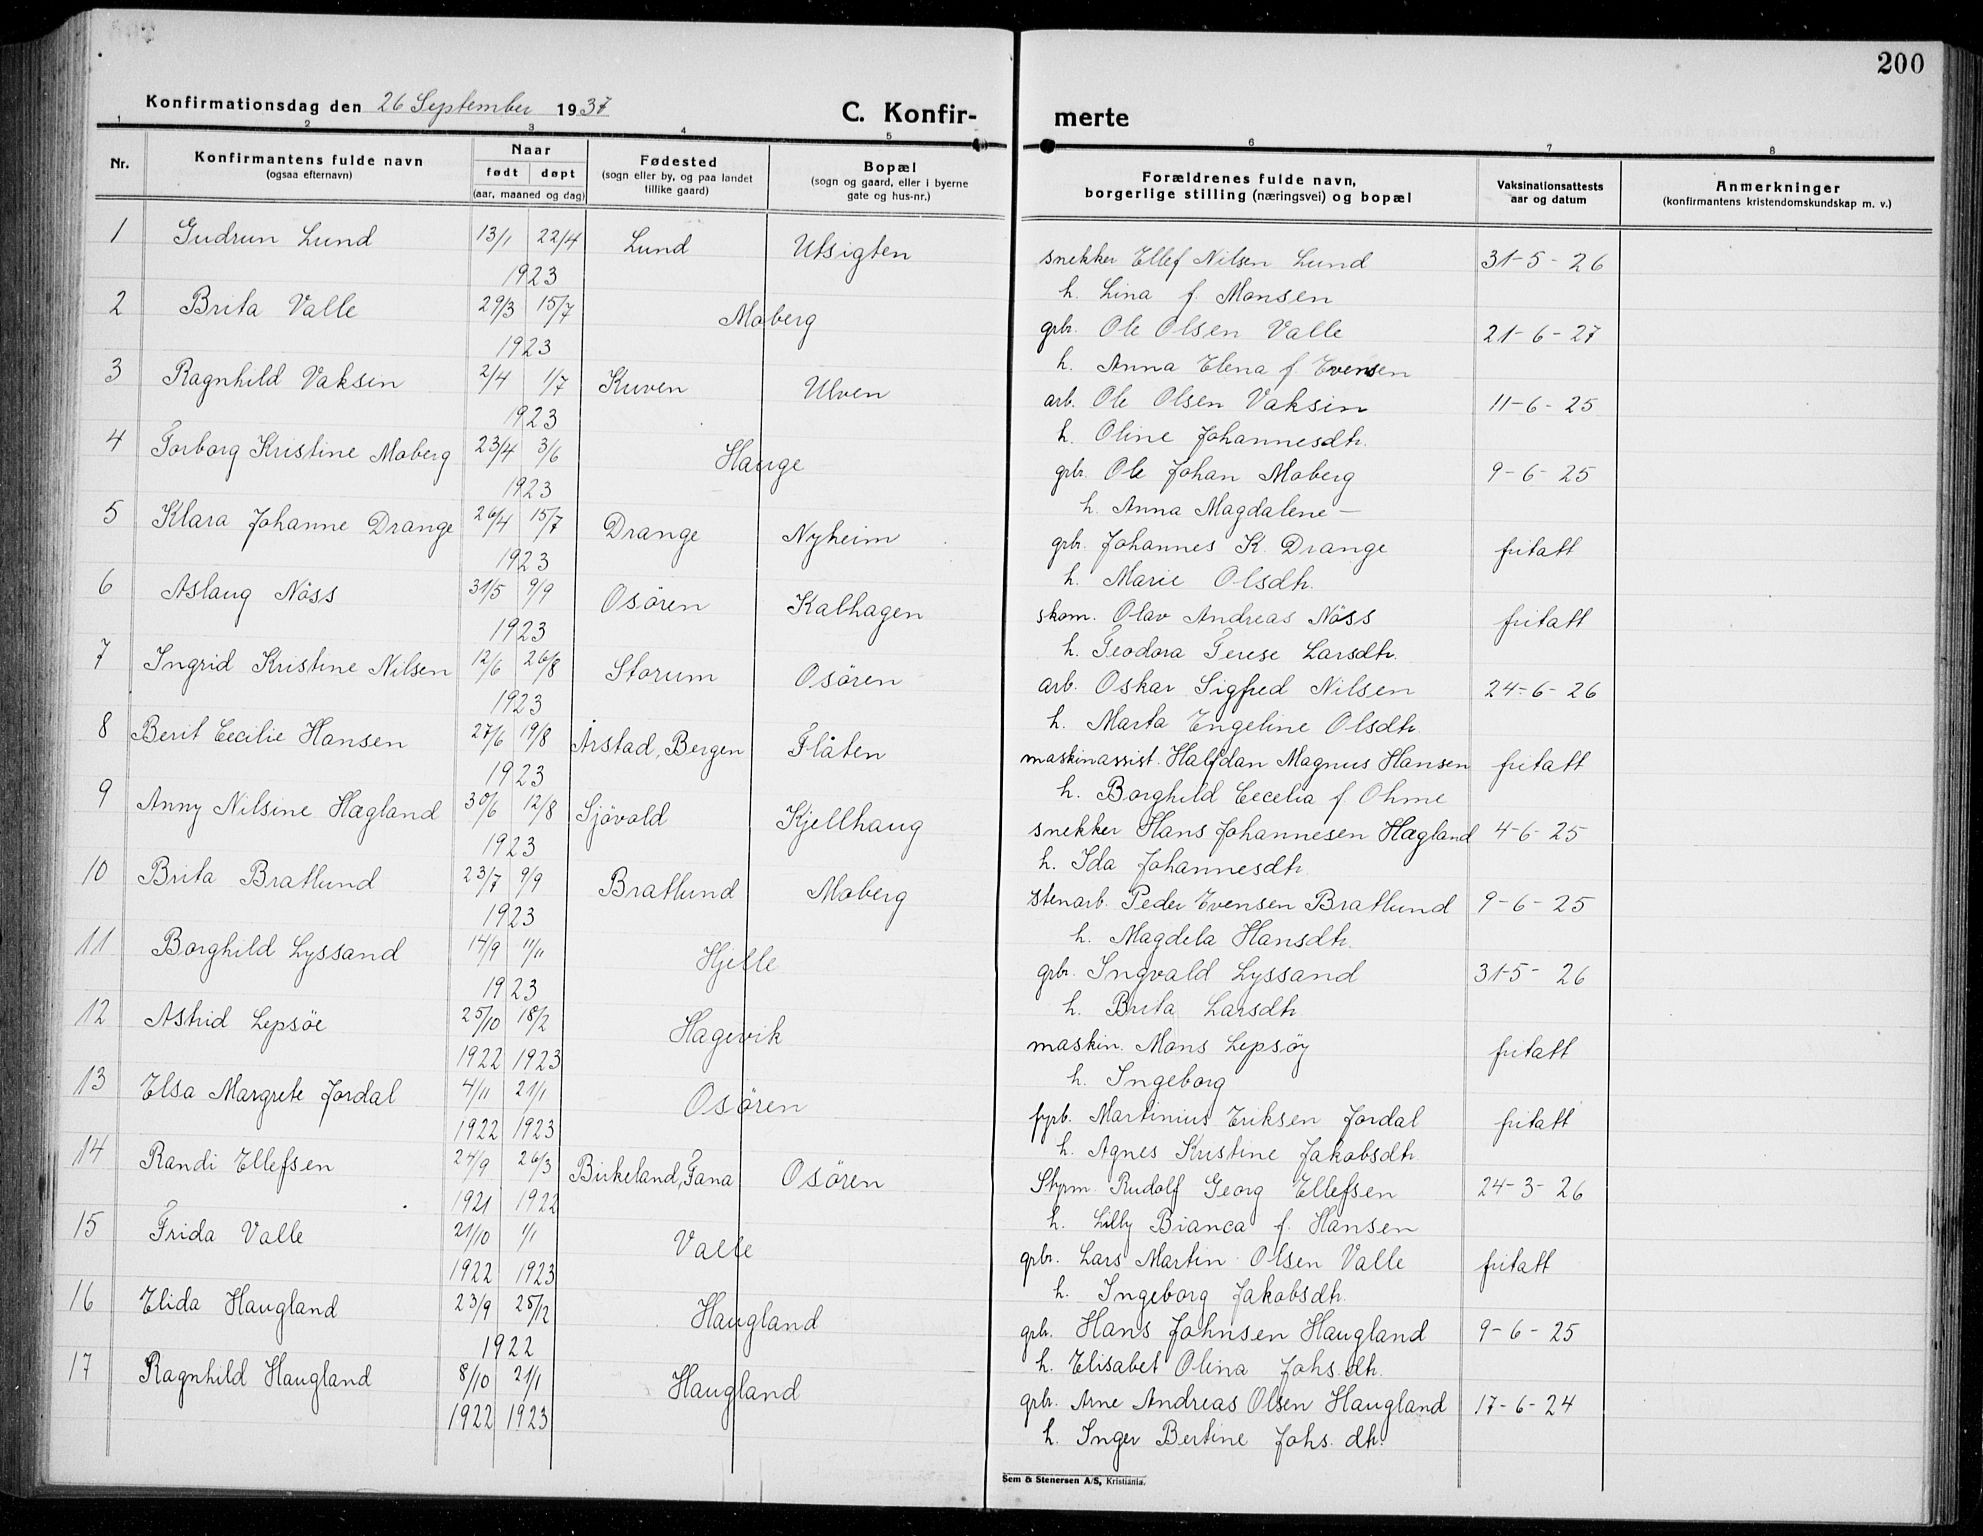 200
Konfirmationsdag den 26 September 1937 C. Konfir- merte
1 2 3 4 5 6 7 8
Nr. Konfirmantens fulde navn (ogsaa efternavn) Naar født døpt (aar, maaned og dag) Fødested (sogn eller by, og paa landet tillike gaard) Bopæl (sogn og gaard, eller i byerne gate og hus-nr.) Forældrenes fulde navn, borgerlige stilling (næringsvei) og bopæl Vaksinationsattests aar og datum Anmerkninger (konfirmantens kristendomskundskap m. v.)
1 Gudrun Lund 13/1 22/4 Lund Utsigten snekker Ellef Nilsen Lund 31-5-26
1923 h. Lina f. Monsen
2 Brita Valle 29/3 15/7 Moberg grbr. Ole Olsen Valle 21-6-27
1923 h. Anna Elena f Evensen
3 Ragnhild Vaksin 2/4 1/7 Kuven Ulven arb. Ole Olsen Vaksin 11-6-25
1923 h. Oline Johannesdtr.
4 Torborg Kristine Moberg 23/4 3/6 Hauge grbr. Ole Johan Moberg 9-6-25
1923 h. Anna Magdalene —
5 Klara Johanne Drange 26/4 15/7 Drange Nyheim grbr. Johannes K. Drange fritatt
1923 h. Marie Olsdtr.
6 Aslaug Nöss 31/5 9/9 Osören Kalhagen skom. Olav Andreas Nöss fritatt
1923 h. Teodora Terese Larsdtr.
7 Ingrid Kristine Nilsen 12/6 26/8 Storum Osören arb. Oskar Sigfred Nilsen 24-6-26
1923 h. Marta Engeline Olsdtr.
8 Berit Cecilie Hansen 27/6 19/8 Årstad, Bergen Flåten maskinassist. Halfdan Magnus Hansen fritatt
1923 h. Borghild Cecelia f. Ohme
9 Anny Nilsine Hægland 30/6 12/8 Sjövold Kjellhaug snekker Hans Johannesen Hægland 4-6-25
1923 h. Ida Johannesdtr.
10 Brita Bratlund 23/7 9/9 Bratlund Moberg stenarb. Peder Evensen Bratlund 9-6-25
1923 h. Magdela Hansdtr.
11 Borghild Lyssand 14/9 11/11 Hjelle grbr. Ingvald Lyssand 31-5-26
1923 h. Brita Larsdtr.
12 Astrid Lepsöe 25/10 18/2 Hagevik maskin. Mons Lepsöy fritatt
1922 1923 h. Ingeborg
13 Elsa Margrete Jordal 4/11 21/1 Osören fyrb. Martinius Eriksen Jordal fritatt
1922 1923 h. Agnes Kristine Jakobsdtr.
14 Randi Ellefsen 24/9 26/3 Birkeland, Fana Osören Styrm. Rudolf Georg Ellefsen 24-3-26
1921 1922 h. Lilly Bianca f. Hansen
15 Frida Valle 21/10 1/1 Valle grbr. Lars Martin Olsen Valle fritatt
1922 1923 h. Ingeborg Jakobsdtr.
16 Elida Haugland 23/9 25/12 Haugland grbr. Hans Johnsen Haugland 9-6-25
1922 h. Elisabet Olina Johs. dtr.
17 Ragnhild Haugland 8/10 21/1 Haugland grbr. Arne Andreas Olsen Haugland 17-6-24
1922 1923 h. Inger Bertine Johs. dtr.
Sem & Stenersen A/S, Kristiania.